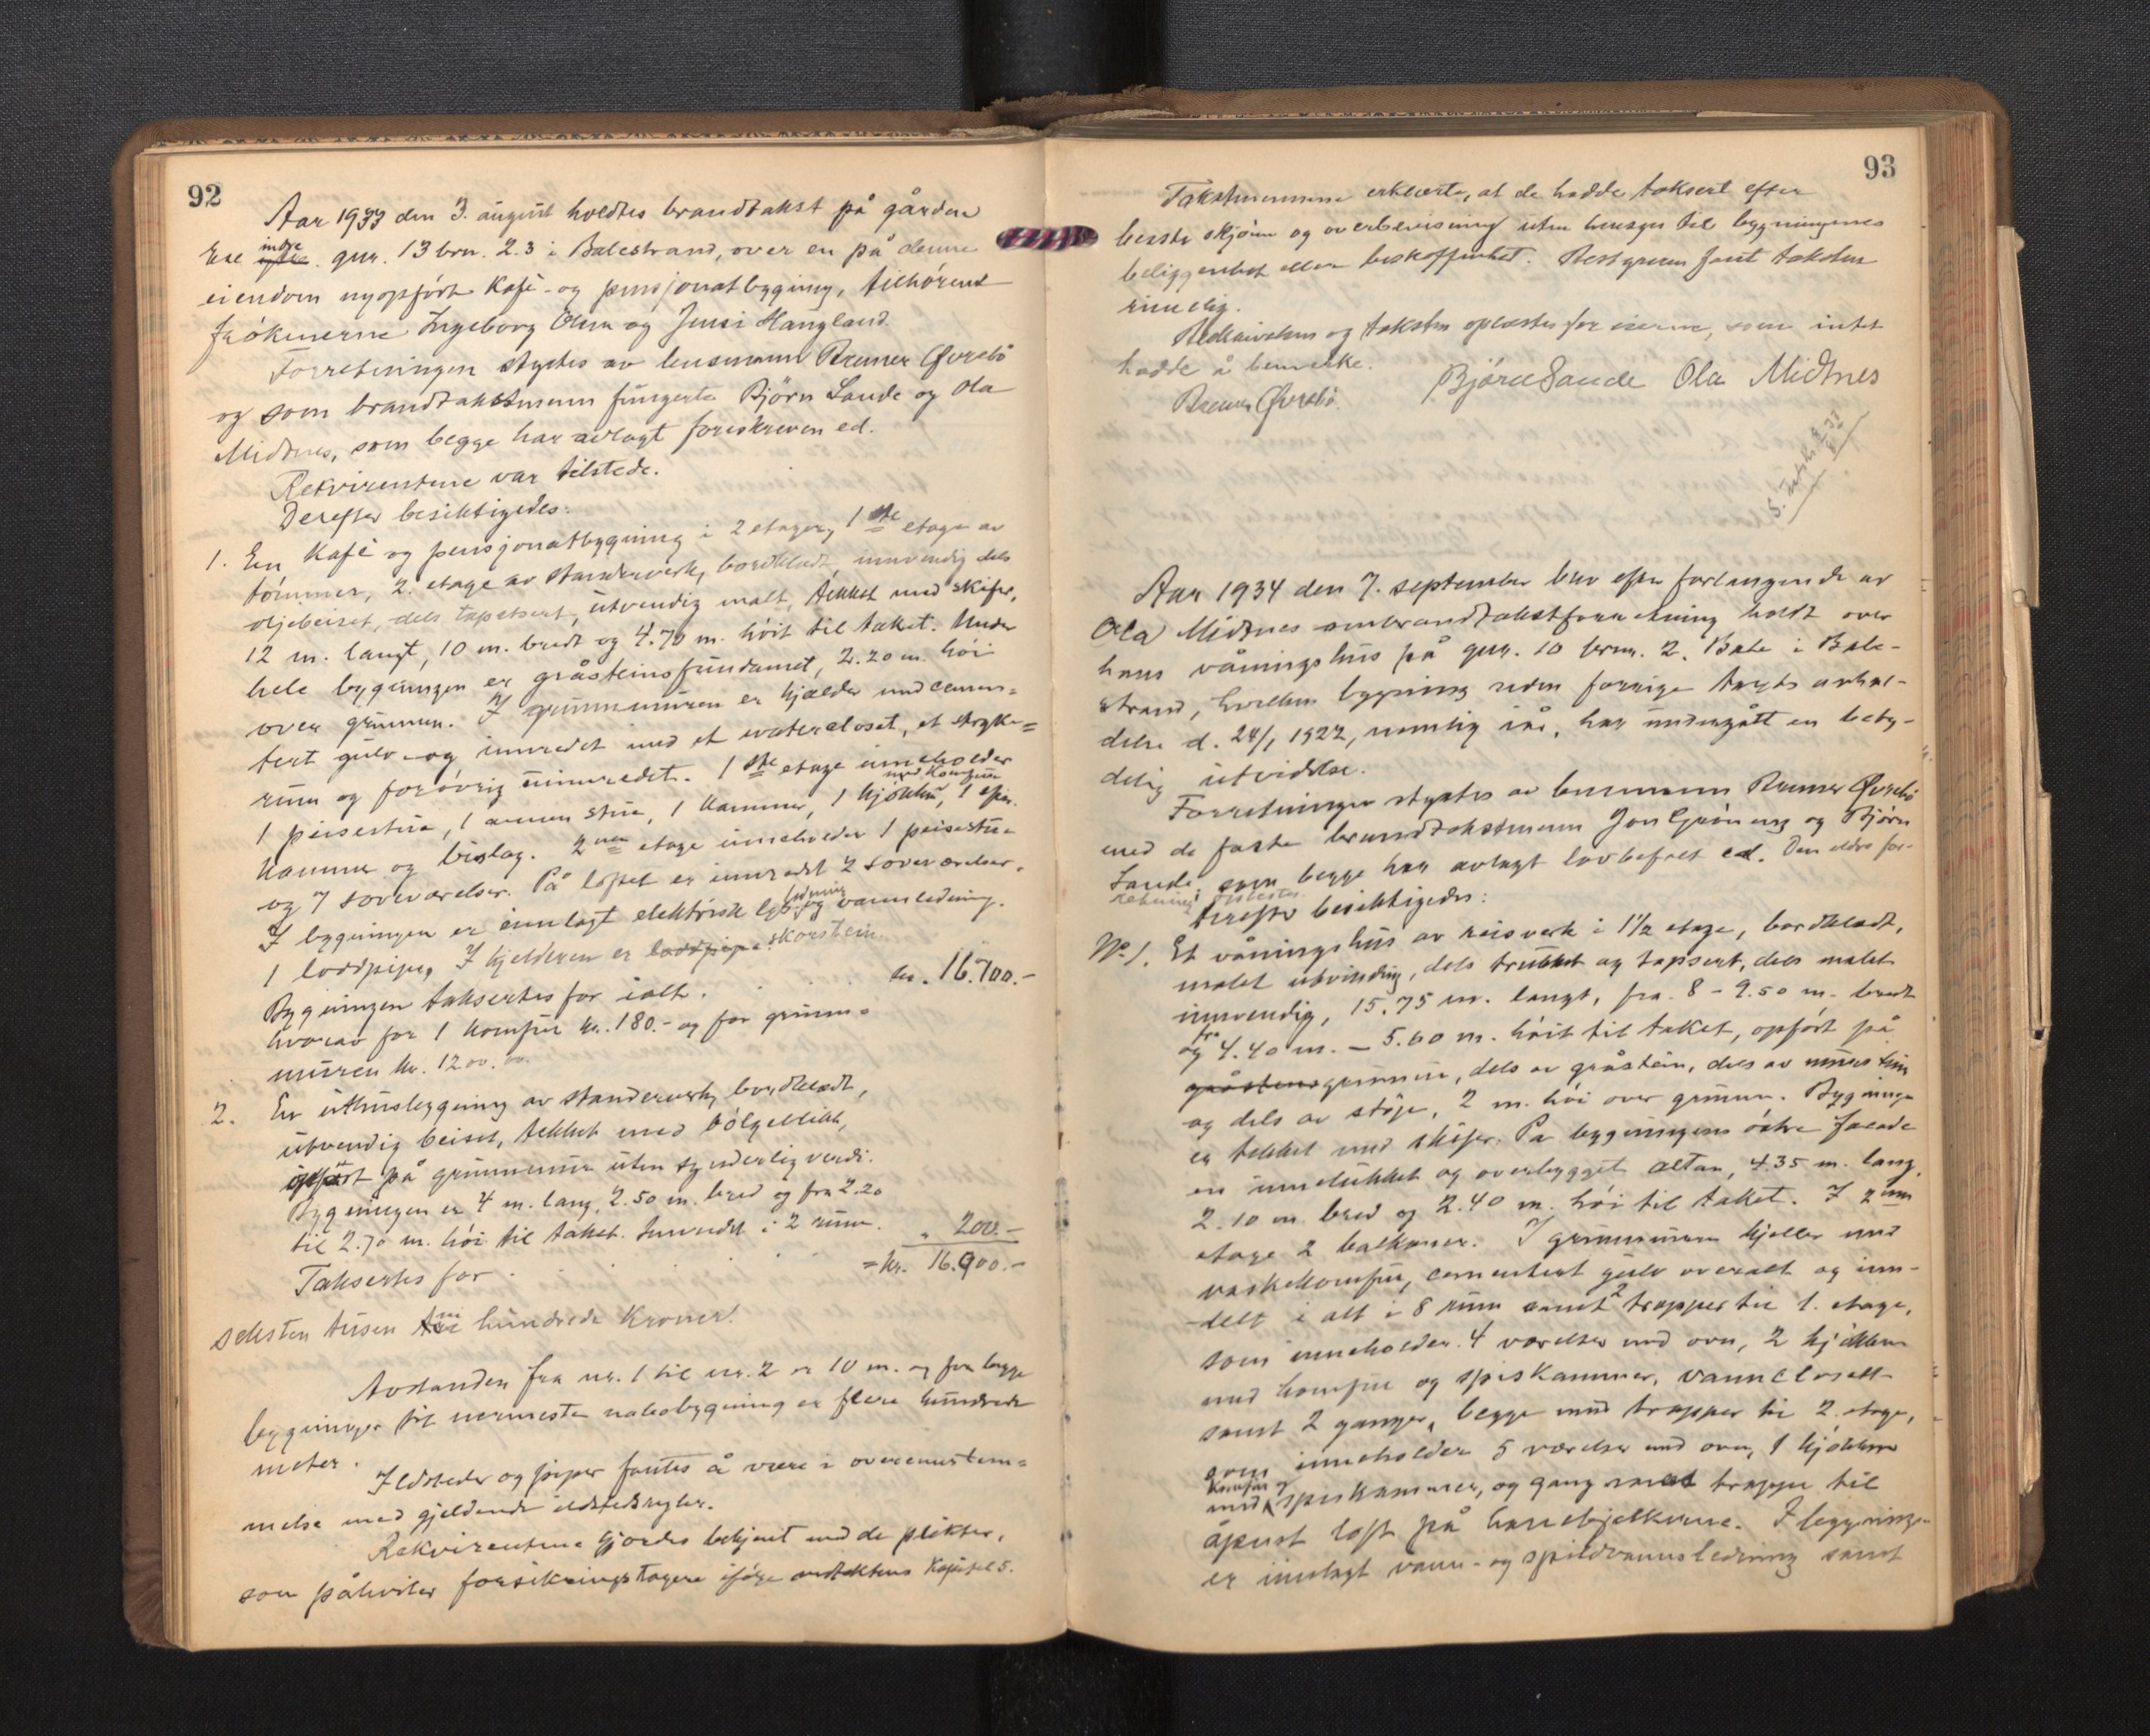 92
Aar 1933 den 3. august holdtes brandtakst på gården
Ese indre ytre. gnr. 13 brn. 2.3 i Balestrand, over en på denne
eiendom nyopført Kafé- og pensjonatbygning, tilhørende
frøknerne Ingeborg Olina og Jensi Haugland.
Forretningen styrtes av lensmann Remer Øvrebö
og som brandtakstmenn fungerte Björn Sande og Ola
Midtnes, som begge har avlagt foreskreven ed.
Rekvirentene var tilstede.
Derefter besiktigedes:
1. En Kafé og pensjonatbygning i 2 etager, 1ste etage av
tømmer, 2. etage av standerverk, bordklædt, innvendig dels
oljebeiset, dels tapetsert, utvendig malt, tekket med skifer,
12 m. langt, 10 m. bredt og 4.70 m. höit til taket. Under
hele bygningen er gråsteinsfundamet, 2.20 m. höi
over grunnen. I grunnmuren er kjælder med cemen-
tert gulv og innredet med et watercloset, et stryke-
rum og forövrig uinnredet. 1ste etage inneholder
1 peisestue, 1 annen stue, 1 kammer, 1 kjökken med komfur, 1 spis-
kammer og bislag. 2nen etage inneholder 1 peisestue
og 7 soveværelser. På loftet er innredet 2 soveværelser.
I bygningen er innlagt elektrisk lysledning og vannledning.
1 loddpipe, I kjelderen er loddpipe skorstein.
Bygningen taksertes for ialt. kr. 16.700.-
hvorav for 1 komfur kr. 180.- og for grunn-
muren kr. 1200.00.
2. En uthusbygning av standerverk, bordklædt,
utvendig beiset, tekket med bölgeblikk,
opfört på grunnmur uten synderlig verdi.
Bygningen er 4 m. lang, 2.50 m. bred og fra 2.20
til 2.70 m. höi til taket. Innredet i 2 rum.
Taksertes for " 200.-
= kr. 16.900.-
seksten tusen ni hundrede Kroner.
Avstanden fra nr. 1 til nr. 2 er 10 m. og fra begge
bygninger til nærmeste nabobygning er flere hundrede
meter.
Ildsteder og piper fantes å være i overensstem-
melse med gjeldende ildstedsregler.
Rekvirentene gjordes bekjent med de plikter,
som påhviler forsikringstagere ifölge Kapitel 5.
93
Takstmennene erklærte, at de hadde taksert efter
beste skjönn og overbevisning uten hensyn til bygningenes
beliggenhet eller beskaffenhet. Bestyreren fant taksten
rimelig.
Beskrivelsen og taksten oplæstes for eierne, som intet
hadde å bemerke.
Björn Sande Ola Midtnes
Remer Øvrebö.
Aar 1934 den 7. september blev efter forlangende av
Ola Midtnes ombrandtakstforretning holdt over
hans våningshus på gnr. 10 brnr. 2. Bale i Bale-
strand, hvilken bygning siden forrige takts avhol-
delse d. 24/1 1922, nemlig iår, har undergått en bety-
delig utvidelse.
Forretningen styrtes av lensmann Remer Øvrebö
med de faste brandtakstmenn Jon Gröneng og Björn
Sande, som begge har avlagt lovbefalt ed. Den eldre for-
retning
Derefter besiktigedes:
No 1. Et våningshus av reisverk i 1½ etage, bordklædt,
malet utvendig, dels trukket og tapsert, dels malet
innvendig, 15.75 m. langt, fra 8 - 9.50 m. bredt
og fra 4.40 m. - 5.60 m. höit til taket, opfört på
gråstens grunnmur, dels av gråstein, dels av murstein
og dels av stöp, 2 m. höi over grunnen. Bygningen
er tekket med skifer. På bygningens östre facade
en innelukket og overbygget altan, 4.35 m. lang,
2.10 m. bred og 2.40 m. höi til taket. I 2nen
etage 2 balkoner. I grunnmuren kjeller med
vaskekomfur, cementert gulv overalt og inn-
delt i alt i 8 rum samt 2 trapper til 1. etage,
som inneholder 4 værelser med ovn, 2 kjökken
med komfur og spiskammer, vanncloset
samt 2 ganger, begge med trapper til 2. etage,
som inneholder 5 værelser med ovn, 1 kjökken
med komfur og spiskammer, og gang med trappe til
åpent loft på hanebjelkerne. I bygningen
er innlagt vann- og spildvannsledning samt